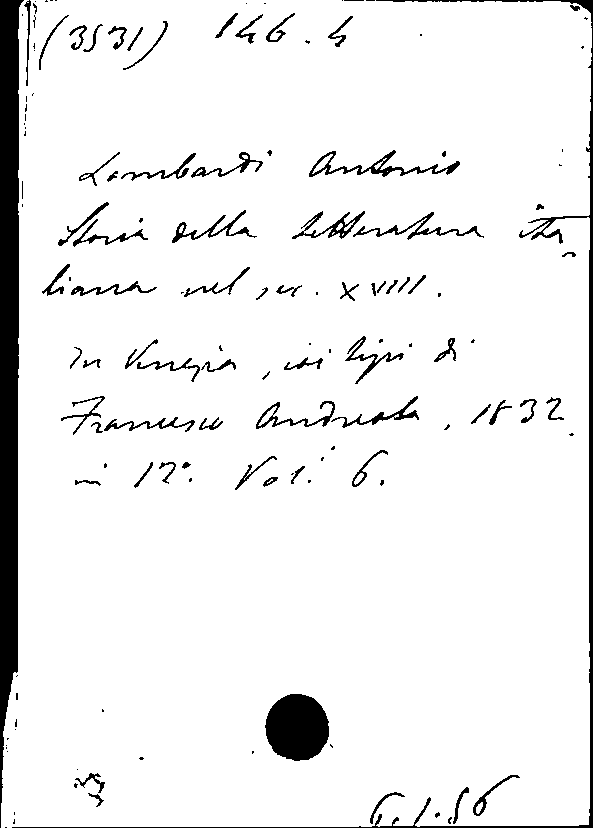 (3531) 146.4
Lombardi Antonio
Storia della letteratura ita
liana nel sec. XVIII.
In Venezia, coi tipi di
Francesco Andreola, 1832.
in 12°. Vol.i 6.
6.1.56